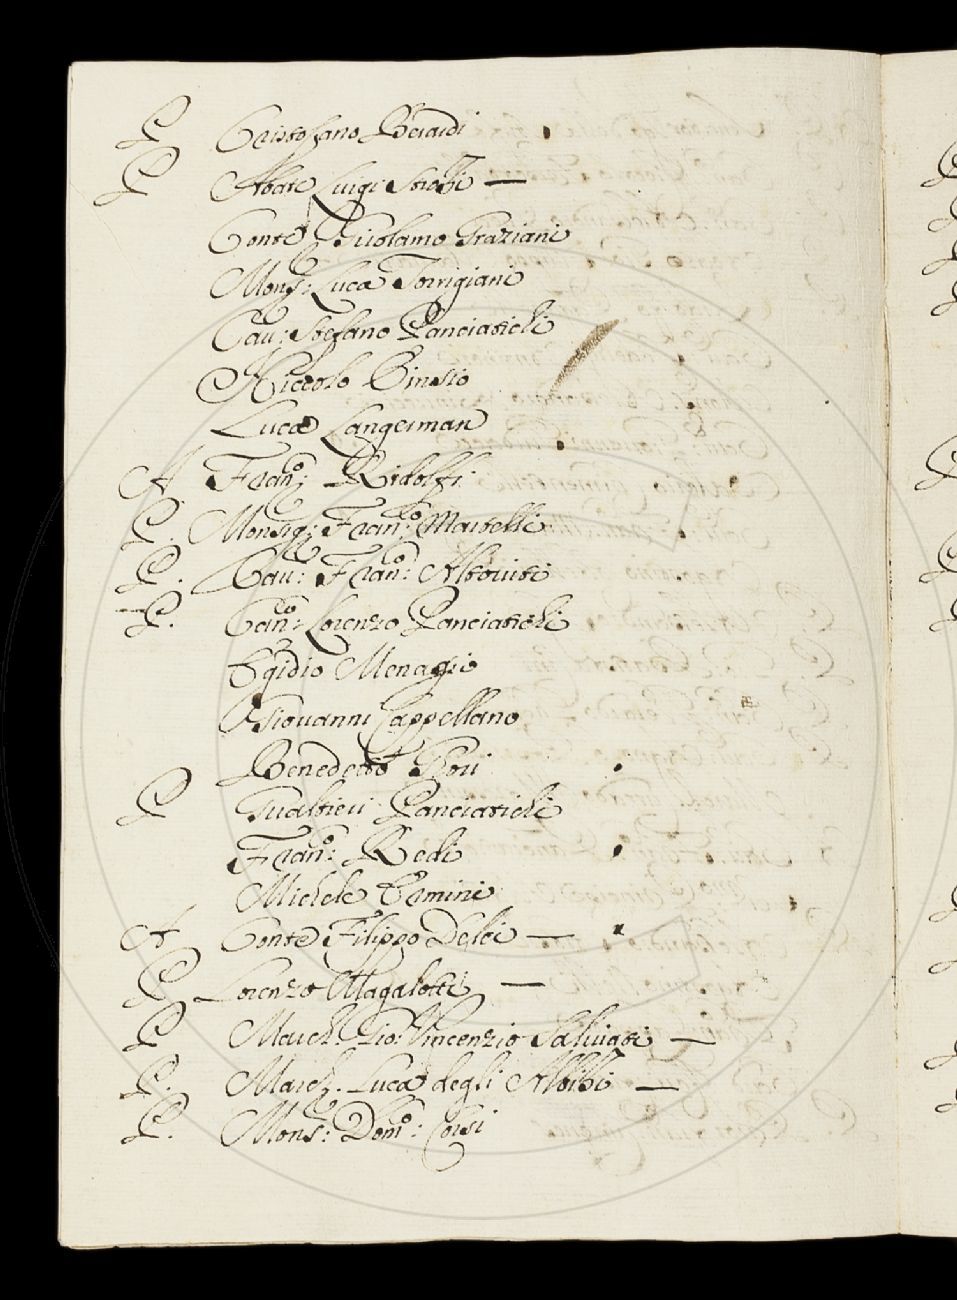 P Cristofano Berardi
P Abate Luigi Strozzi —
Conte Girolamo Graziani
Mons: Luca Torrigiani
Cau: Stefano Panciatichi
Niccolo Einsio
Luca Langerman
A Franº: Ridolfi
P. Monsig: Franº: Martelli
P. Cau: Franº: Altouiti
P. Canº: Lorenzo Panciatichi
Egidio Menagio
Giouanni Cappellano
Benedetto Gori
P Gualtieri Panciatichi
Franº: Redi
Michele Ermini
A Conte Filippo Delci —
P Lorenzo Magalotti —
P March. Gio: Vincenzio Saluiati —
P. March. Luca degli Albizi —
P. Mons: Domº: Corsi